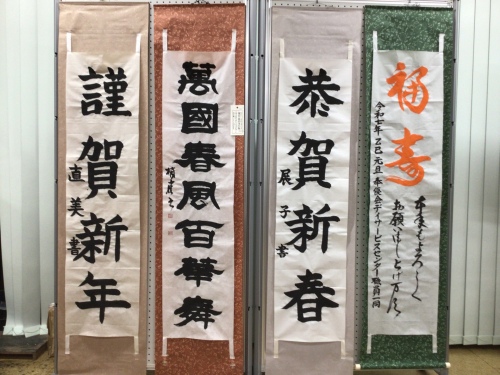 福寿
令和七年乙巳元旦
本年もよろしく
お願い申し上げます
恭賀新春
展子書
萬國春風百華舞
謹賀新年
直美書